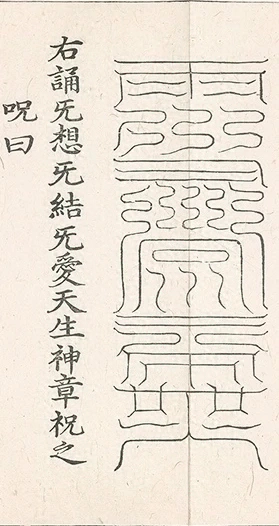 右誦旡想旡結旡愛天生神章祝之
呪曰